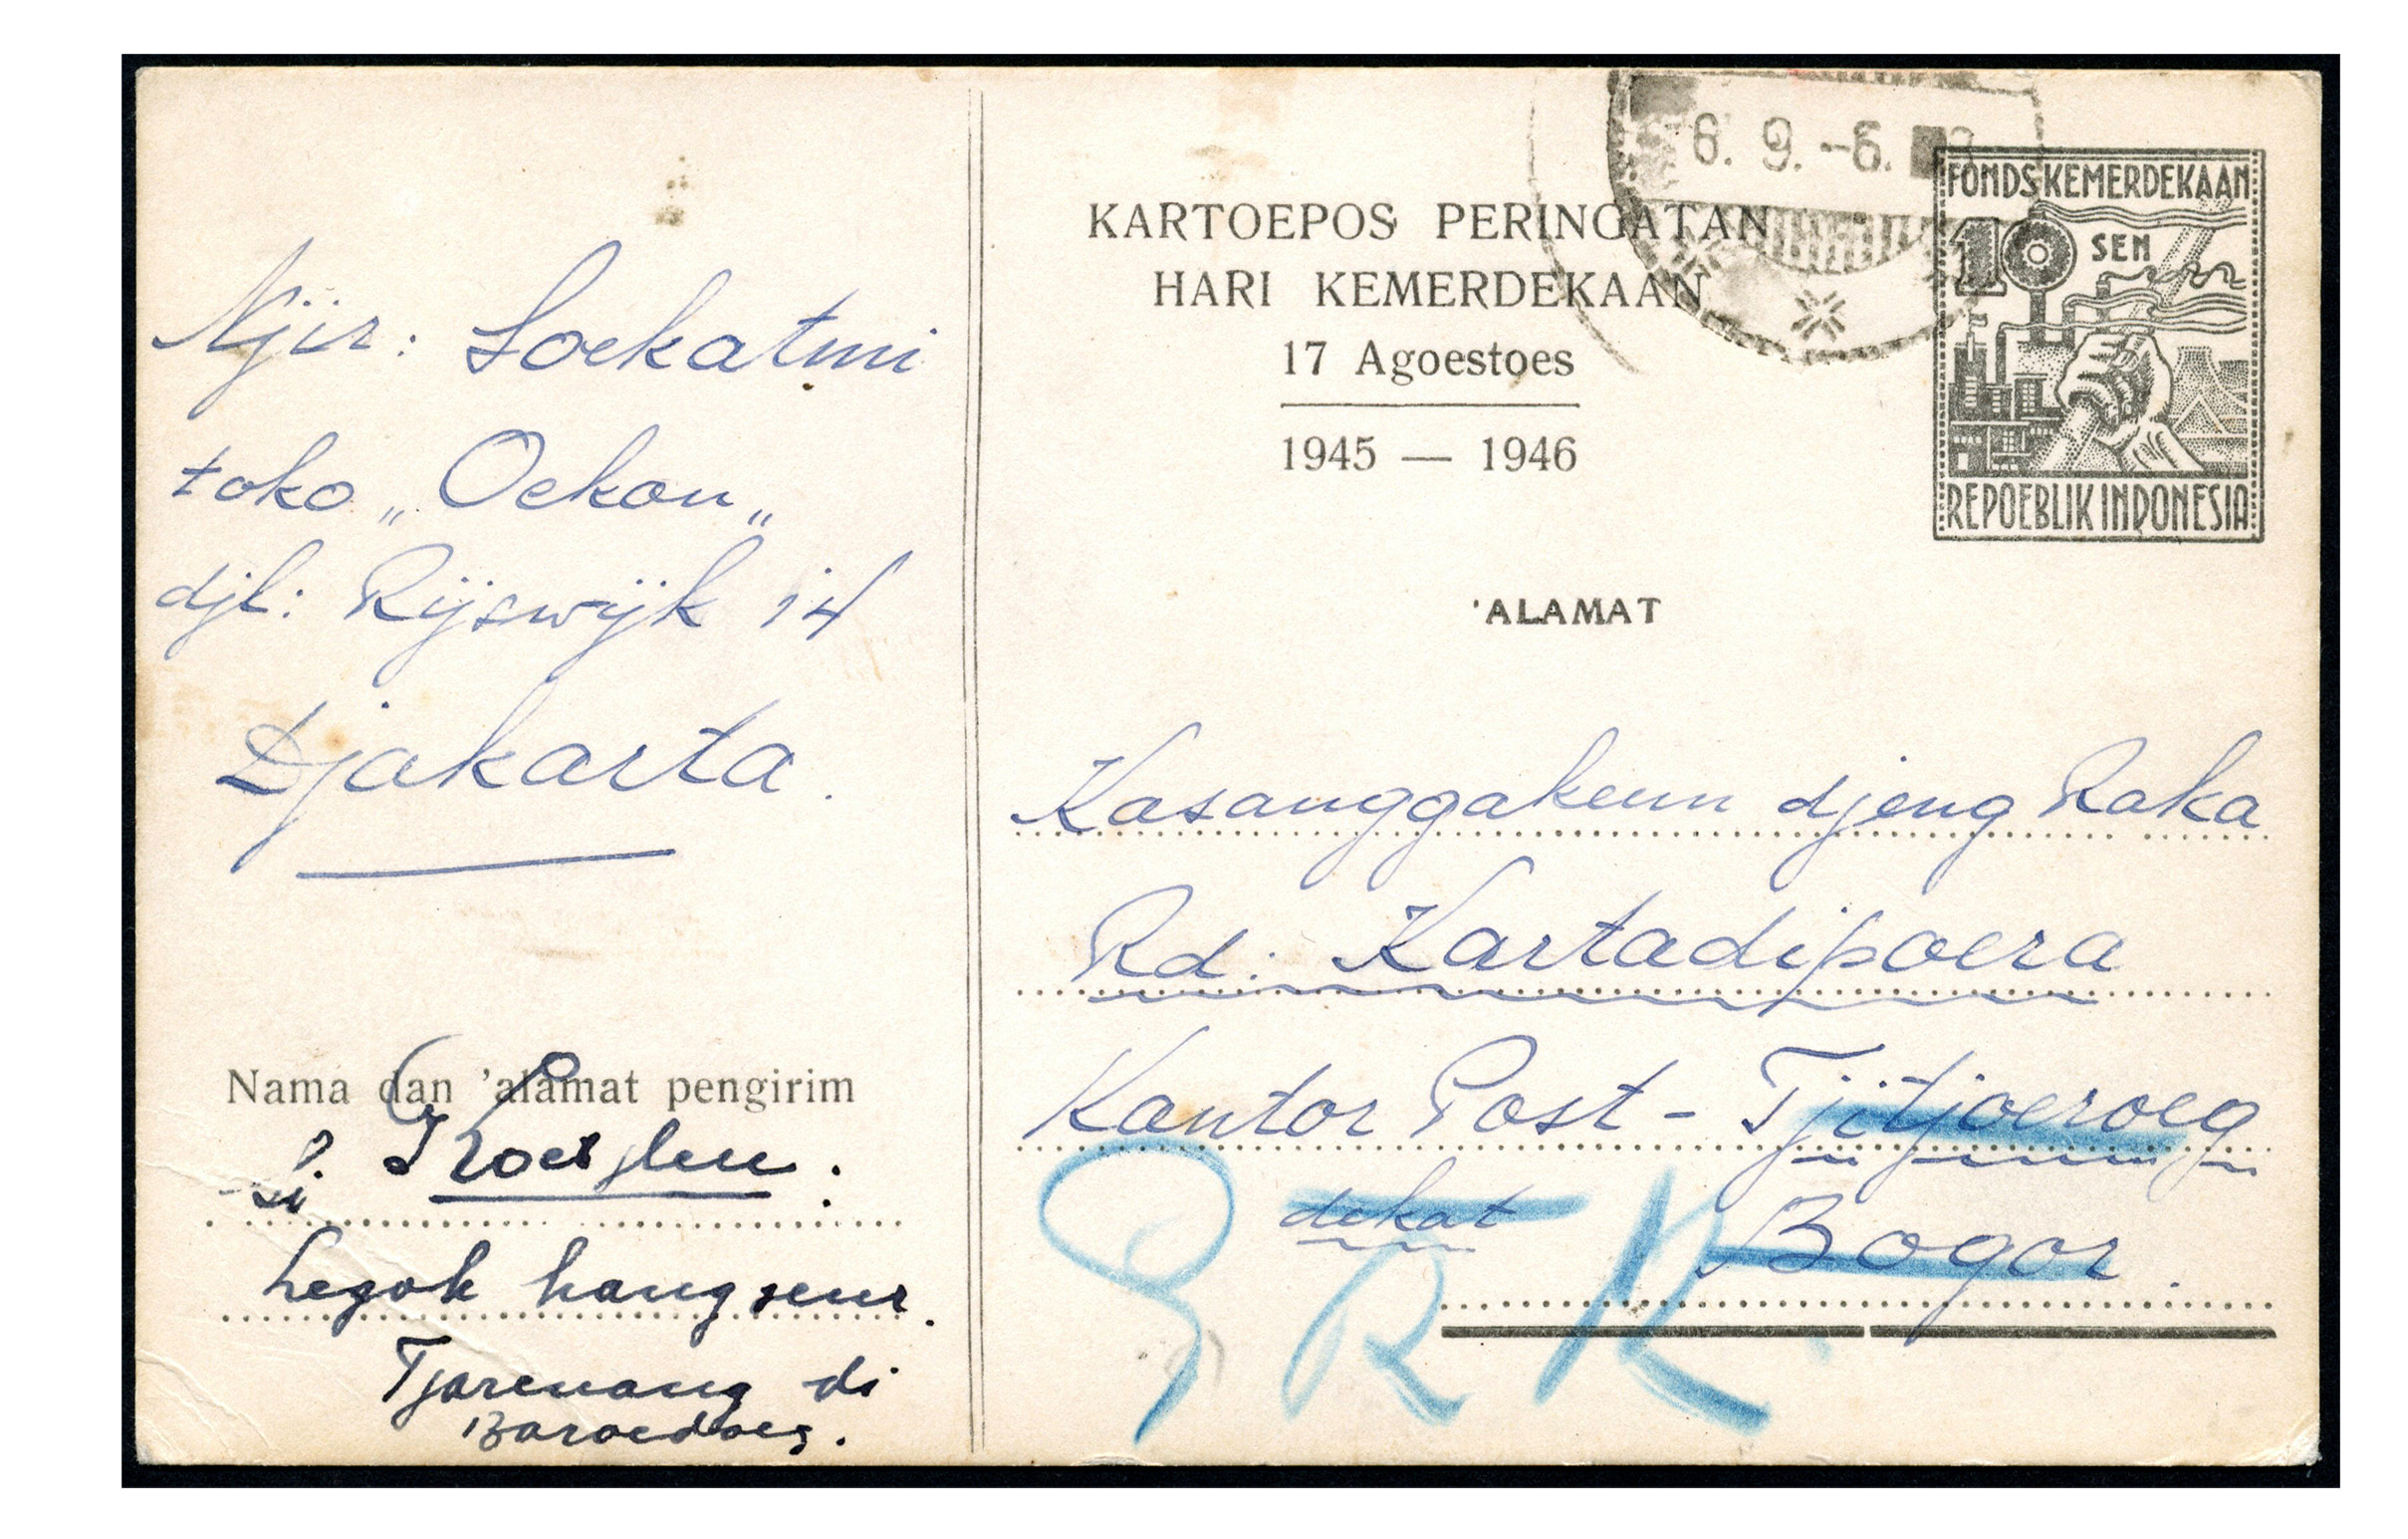 Njir: Soekatmi
toko „Oekon„
djl: Rijswijk 14
Djakarta.
Nama dan 'alamat pengirim
Legok hangseur.
Tjarenang di
KARTOEPOS PERINGATAN
HARI KEMERDEKAAN
17 Agoestoes
1945 — 1946
6. 9. -6.
FONDS KEMERDEKAAN
10 SEN
REPOEBLIK INDONESIA
'ALAMAT
Kasanggakeun djeng Raka
Rd: Kartadipoera
Kantor Post - Tjitjoeroeg
dekat Bogor.